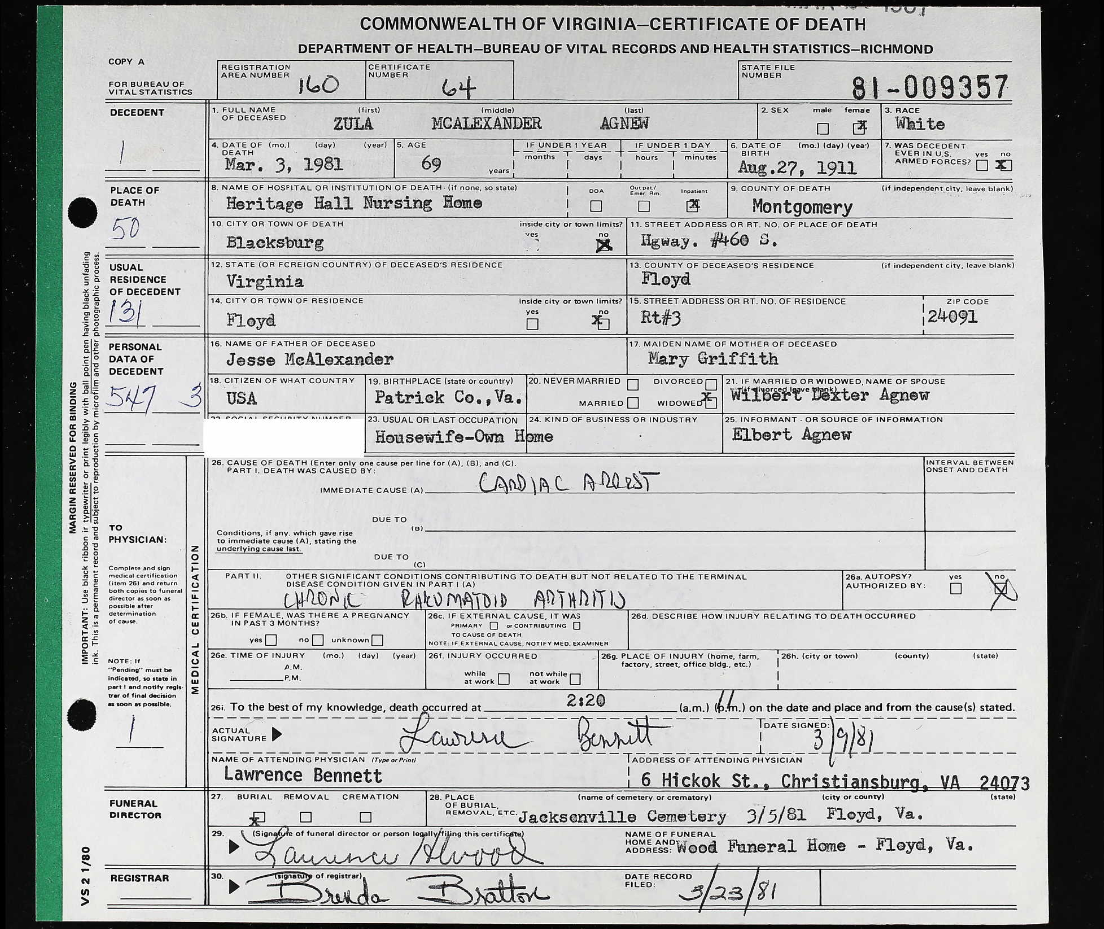 COMMONWEALTH OF VIRGINIA—CERTIFICATE OF DEATH
DEPARTMENT OF HEALTH—BUREAU OF VITAL RECORDS AND HEALTH STATISTICS—RICHMOND
COPY A
FOR BUREAU OF VITAL STATISTICS
REGISTRATION AREA NUMBER 160
CERTIFICATE NUMBER 64
STATE FILE NUMBER 81-009357
DECEDENT
1
1. FULL NAME OF DECEASED (first) (middle) (last)
ZULA MCALEXANDER AGNEW
2. SEX male female
3. RACE
White
4. DATE OF DEATH (mo.) (day) (year)
Mar. 3, 1981
5. AGE
69 years
IF UNDER 1 YEAR
months days
IF UNDER 1 DAY
hours minutes
6. DATE OF BIRTH (mo.) (day) (year)
Aug.27, 1911
7. WAS DECEDENT EVER IN U.S. ARMED FORCES? yes no
PLACE OF DEATH
50
8. NAME OF HOSPITAL OR INSTITUTION OF DEATH (if none, so state)
Heritage Hall Nursing Home
DOA Outpat/ Emer. Rm. Inpatient
9. COUNTY OF DEATH (if independent city, leave blank)
Montgomery
10. CITY OR TOWN OF DEATH
Blacksburg
inside city or town limits?
yes no
11. STREET ADDRESS OR RT. NO. OF PLACE OF DEATH
Hgway. #460 S.
USUAL RESIDENCE OF DECEDENT
131
12. STATE (OR FOREIGN COUNTRY) OF DECEASED'S RESIDENCE
Virginia
13. COUNTY OF DECEASED'S RESIDENCE (if independent city, leave blank)
Floyd
14. CITY OR TOWN OF RESIDENCE
Floyd
inside city or town limits?
yes no
15. STREET ADDRESS OR RT. NO. OF RESIDENCE
Rt#3
ZIP CODE
24091
PERSONAL DATA OF DECEDENT
547 3
16. NAME OF FATHER OF DECEASED
Jesse McAlexander
17. MAIDEN NAME OF MOTHER OF DECEASED
Mary Griffith
18. CITIZEN OF WHAT COUNTRY
USA
19. BIRTHPLACE (state or country)
Patrick Co.,Va.
20. NEVER MARRIED DIVORCED
MARRIED WIDOWED
21. IF MARRIED OR WIDOWED, NAME OF SPOUSE
(if divorced leave blank)
Wilbert Dexter Agnew
23. USUAL OR LAST OCCUPATION
Housewife-Own Home
24. KIND OF BUSINESS OR INDUSTRY
25. INFORMANT - OR SOURCE OF INFORMATION
Elbert Agnew
MARGIN RESERVED FOR BINDING
IMPORTANT: Use black ribbon if typewriter or print legibly with ball point pen having black unfading
ink. This is a permanent record and subject to reproduction by microfilm and other photographic process.
VS 2 1/80
TO PHYSICIAN:
Complete and sign medical certification (item 26) and return both copies to funeral director as soon as possible after determination of cause.
NOTE: If "Pending" must be indicated, so state in part I and notify registrar of final decision as soon as possible.
1
MEDICAL CERTIFICATION
26. CAUSE OF DEATH (Enter only one cause per line for (A), (B), and (C).
PART I. DEATH WAS CAUSED BY:
INTERVAL BETWEEN ONSET AND DEATH
IMMEDIATE CAUSE (A) CARDIAC ARREST
DUE TO
(B)
Conditions, if any, which gave rise to immediate cause (A), stating the underlying cause last.
DUE TO
(C)
PART II. OTHER SIGNIFICANT CONDITIONS CONTRIBUTING TO DEATH BUT NOT RELATED TO THE TERMINAL DISEASE CONDITION GIVEN IN PART I (A)
CHRONIC RHEUMATOID ARTHRITIS
26a. AUTOPSY? AUTHORIZED BY: yes no
26b. IF FEMALE, WAS THERE A PREGNANCY IN PAST 3 MONTHS?
yes no unknown
26c. IF EXTERNAL CAUSE, IT WAS
PRIMARY or CONTRIBUTING
TO CAUSE OF DEATH
NOTE: IF EXTERNAL CAUSE, NOTIFY MED. EXAMINER
26d. DESCRIBE HOW INJURY RELATING TO DEATH OCCURRED
26e. TIME OF INJURY (mo.) (day) (year)
A.M.
P.M.
26f. INJURY OCCURRED
while at work not while at work
26g. PLACE OF INJURY (home, farm, factory, street, office bldg., etc.)
26h. (city or town) (county) (state)
26i. To the best of my knowledge, death occurred at 2:20 (a.m.) (p.m.) on the date and place and from the cause(s) stated.
ACTUAL SIGNATURE Lawrence Bennett
DATE SIGNED: 3/9/81
NAME OF ATTENDING PHYSICIAN (Type or Print)
Lawrence Bennett
ADDRESS OF ATTENDING PHYSICIAN
6 Hickok St., Christiansburg, VA 24073
FUNERAL DIRECTOR
27. BURIAL REMOVAL CREMATION
28. PLACE OF BURIAL, REMOVAL, ETC. (name of cemetery or crematory) (city or county) (state)
Jacksonville Cemetery 3/5/81 Floyd, Va.
29. (Signature of funeral director or person legally filing this certificate)
NAME OF FUNERAL HOME AND ADDRESS: Wood Funeral Home - Floyd, Va.
REGISTRAR
30. (signature of registrar)
Brenda Bratton
DATE RECORD FILED: 3/23/81